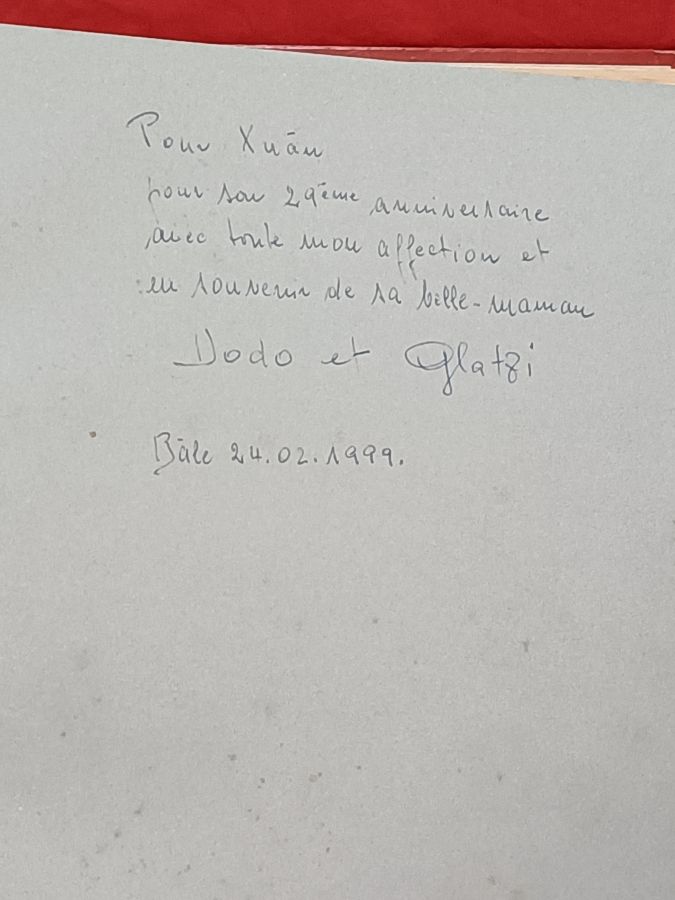 Pour Xuân
pour son 29ème anniversaire
avec toute mon affection et
en souvenir de sa belle-maman
Dodo et Glatzi
Bâle 24.02.1999.